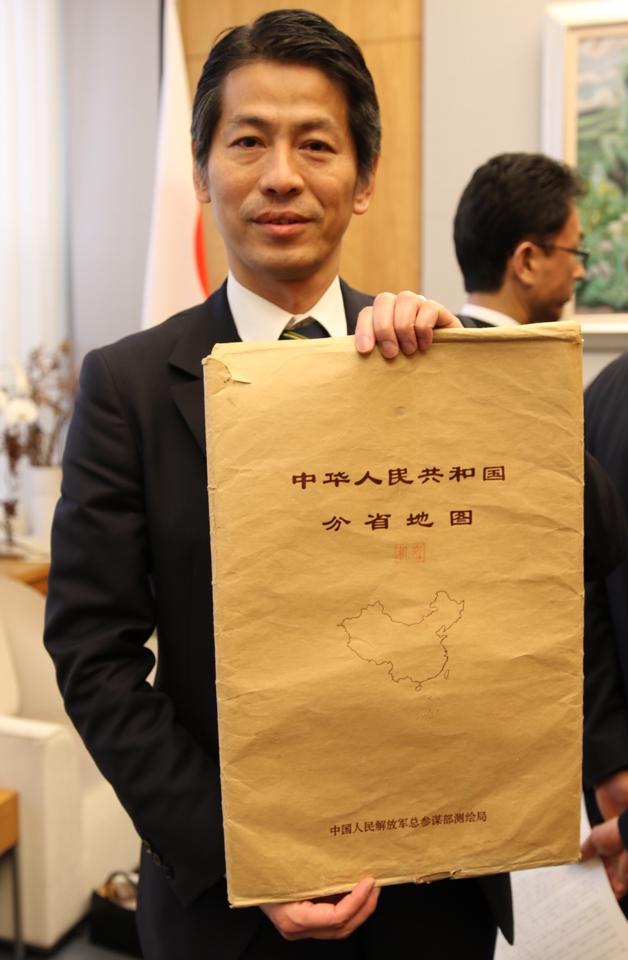 中华人民共和国
分省地图
中国人民解放军总参谋部测绘局